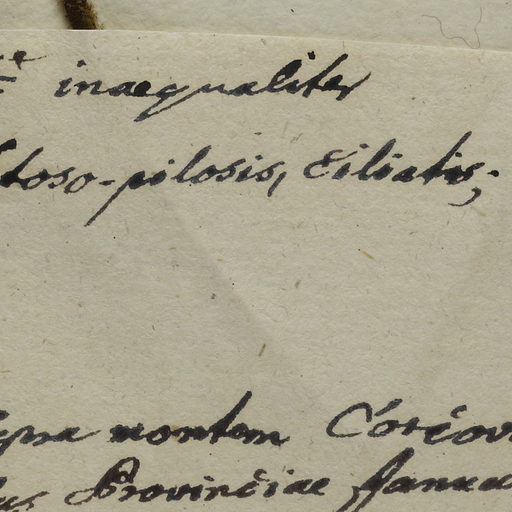 inaequaliter
toso-pilosis, Ciliatis;
montem Corcov
Provinciae Janua